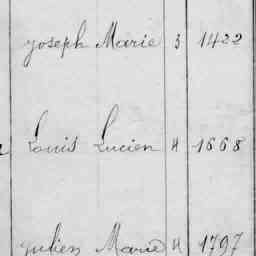 Joseph Marie 3 1422
Louis Lucien 4 1668
Julien Marie 4 1797